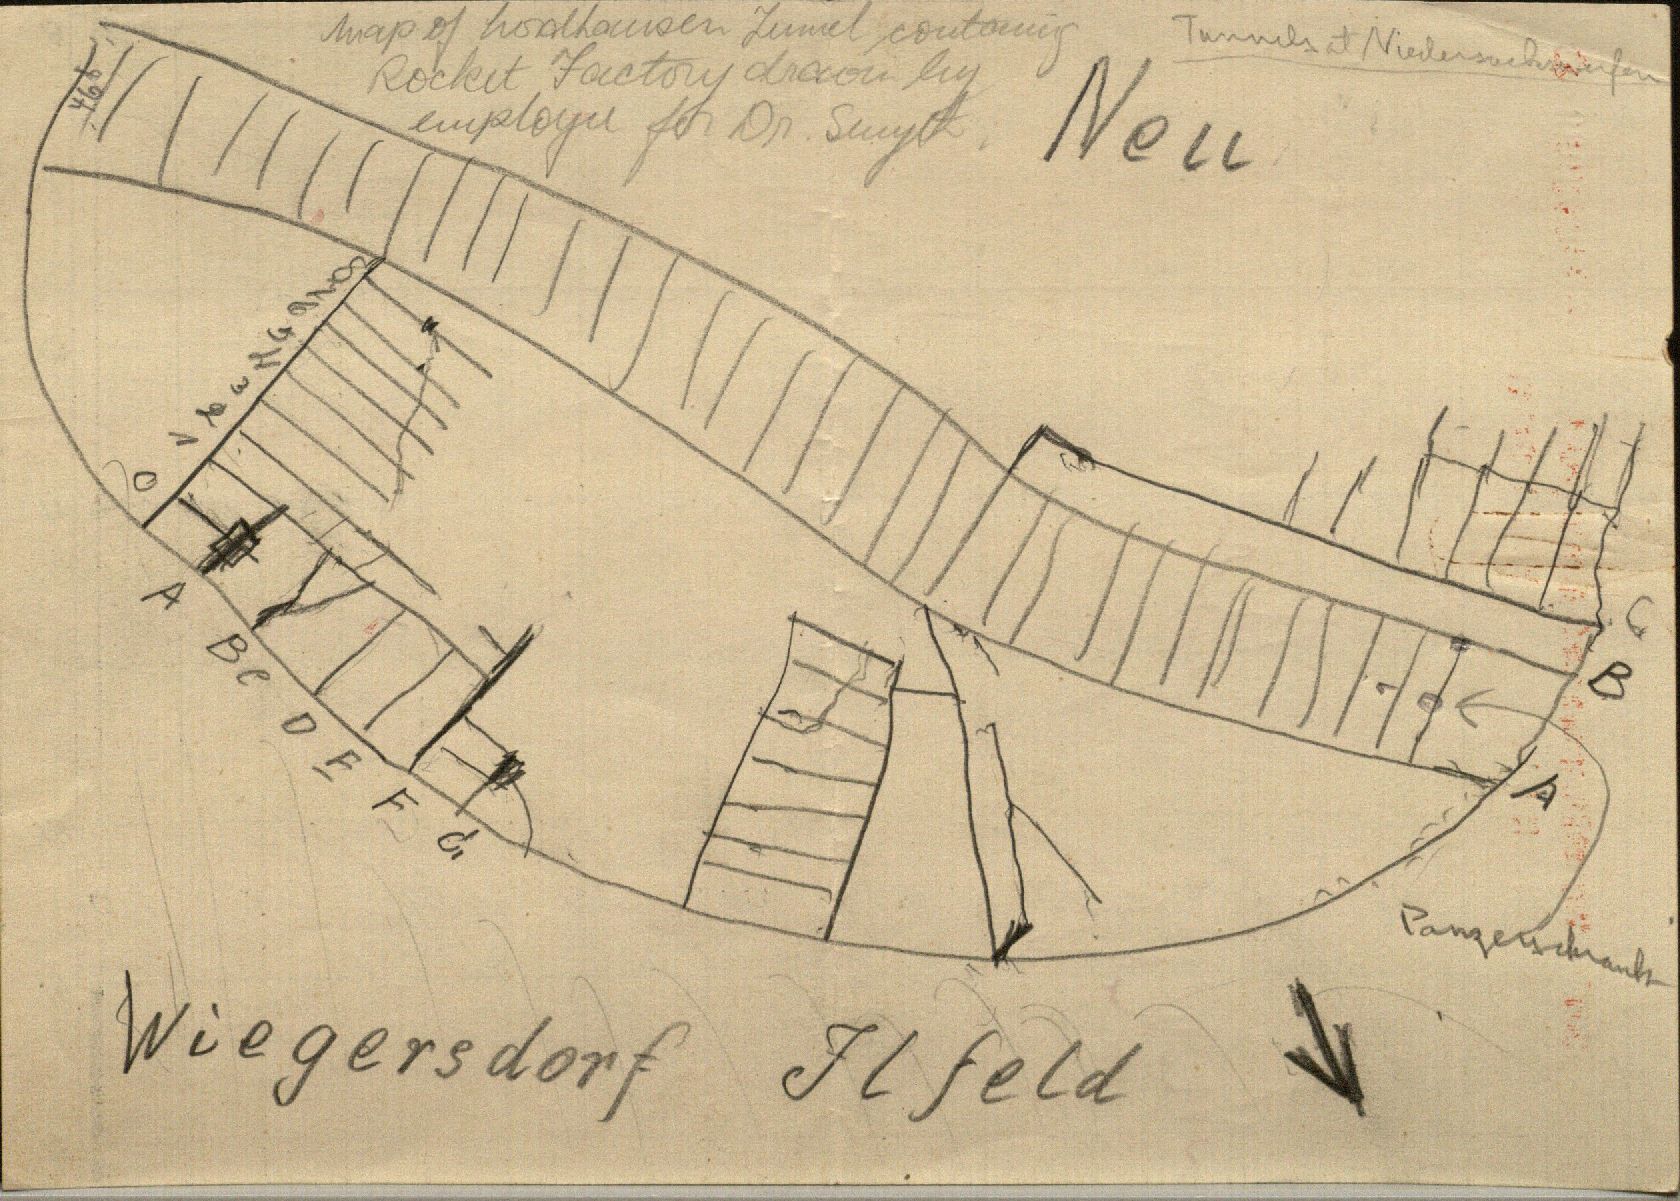 Map of Nordhausen Tunnel containing
Rocket Factory drawn by
employee for Dr. Smyth.
Tunnels at Niedersachswerfen
Neu
46
0
1
2
3
4
A
B
C
D
E
F
G
C
B
A
1
0
Panzerschrank
Wiegersdorf Ilfeld